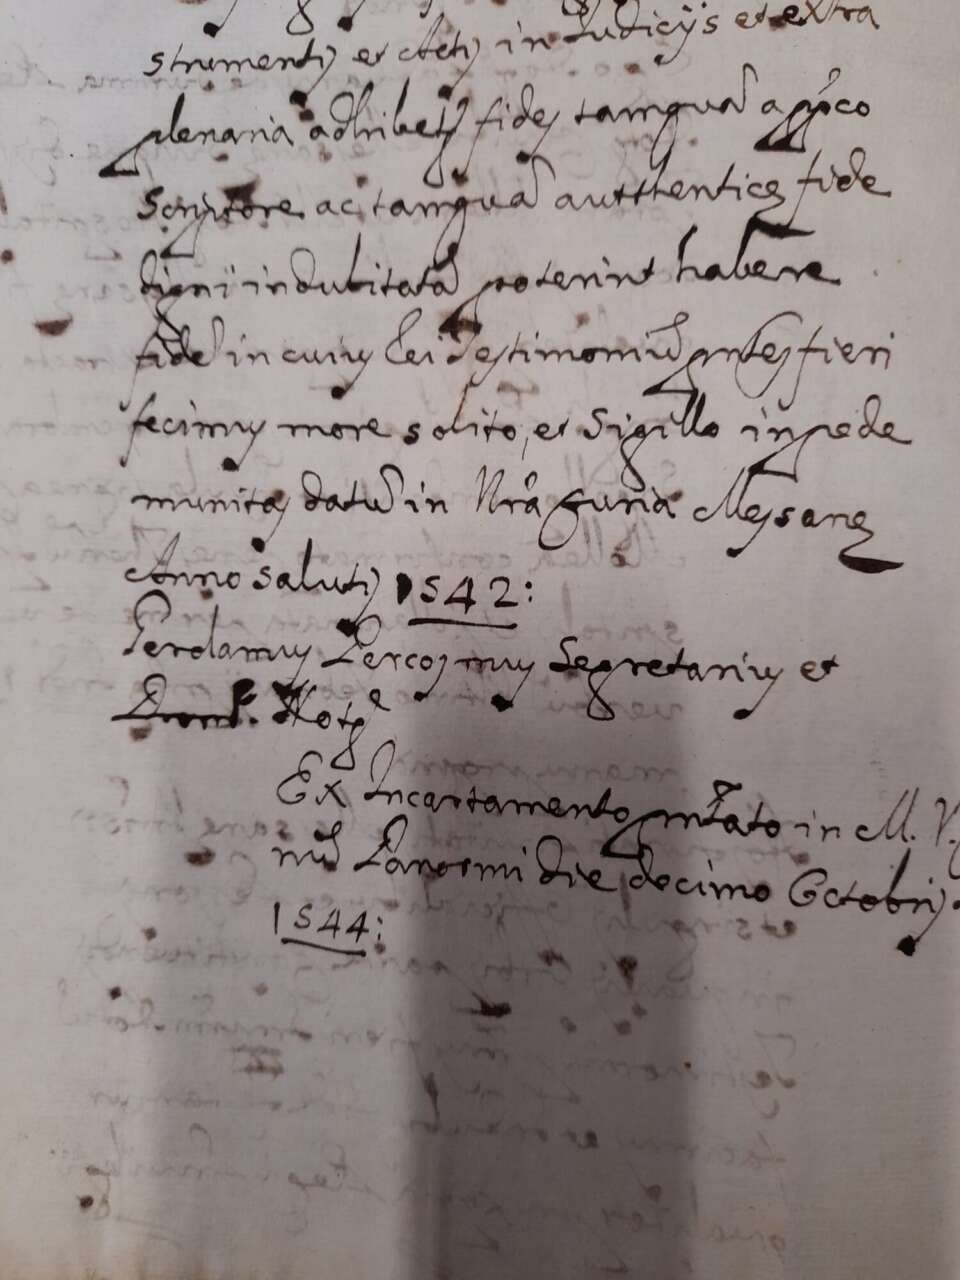 strumentis et Actis in Judicijs et extra
plenaria adhibetur fides tamqua͂ a pp͂co
Scriptore ac tamqua͂ autthenticę fide
digni indubitata͂ poterint habere
fide͂ in cuius Rei Testimoniu͂ pn͂tes fieri
fecimus more solito, et Sigillo in pede
munitas datu͂ in Nr͂a Curia Messanę
Anno Salutis 1542:
Gerolamus Percosmus Segretarius et
Not
Ex Incartamento pn͂tato in M. V.
nu͂ Panormi die decimo Octobris
1544: